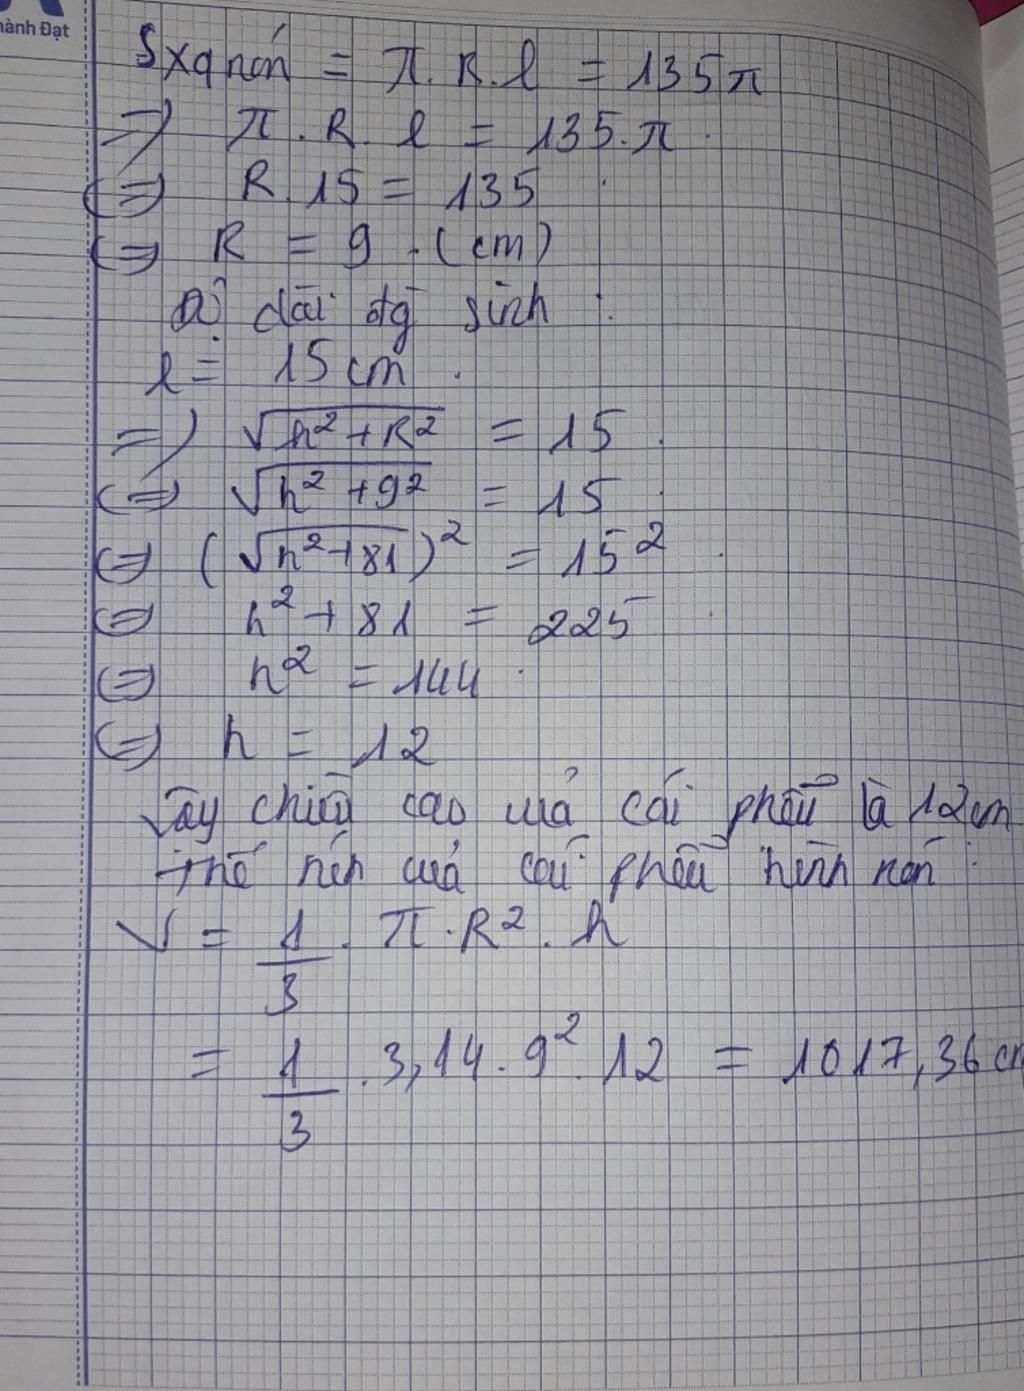 hành Đạt
Sxq nón = π . R . l = 135π
=> π . R . l = 135 . π
<=> R . 15 = 135
<=> R = 9 (cm)
Độ dài đg sinh :
l = 15 cm
=> √(h² + R²) = 15
<=> √(h² + 9²) = 15
<=> (√(h² + 81))² = 15²
<=> h² + 81 = 225
<=> h² = 144
<=> h = 12
Vậy chiều cao của cái phễu là 12cm
Thể tích của cái phễu hình nón :
V = 1/3 . π . R² . h
= 1/3 . 3,14 . 9² . 12 = 1017,36 cm